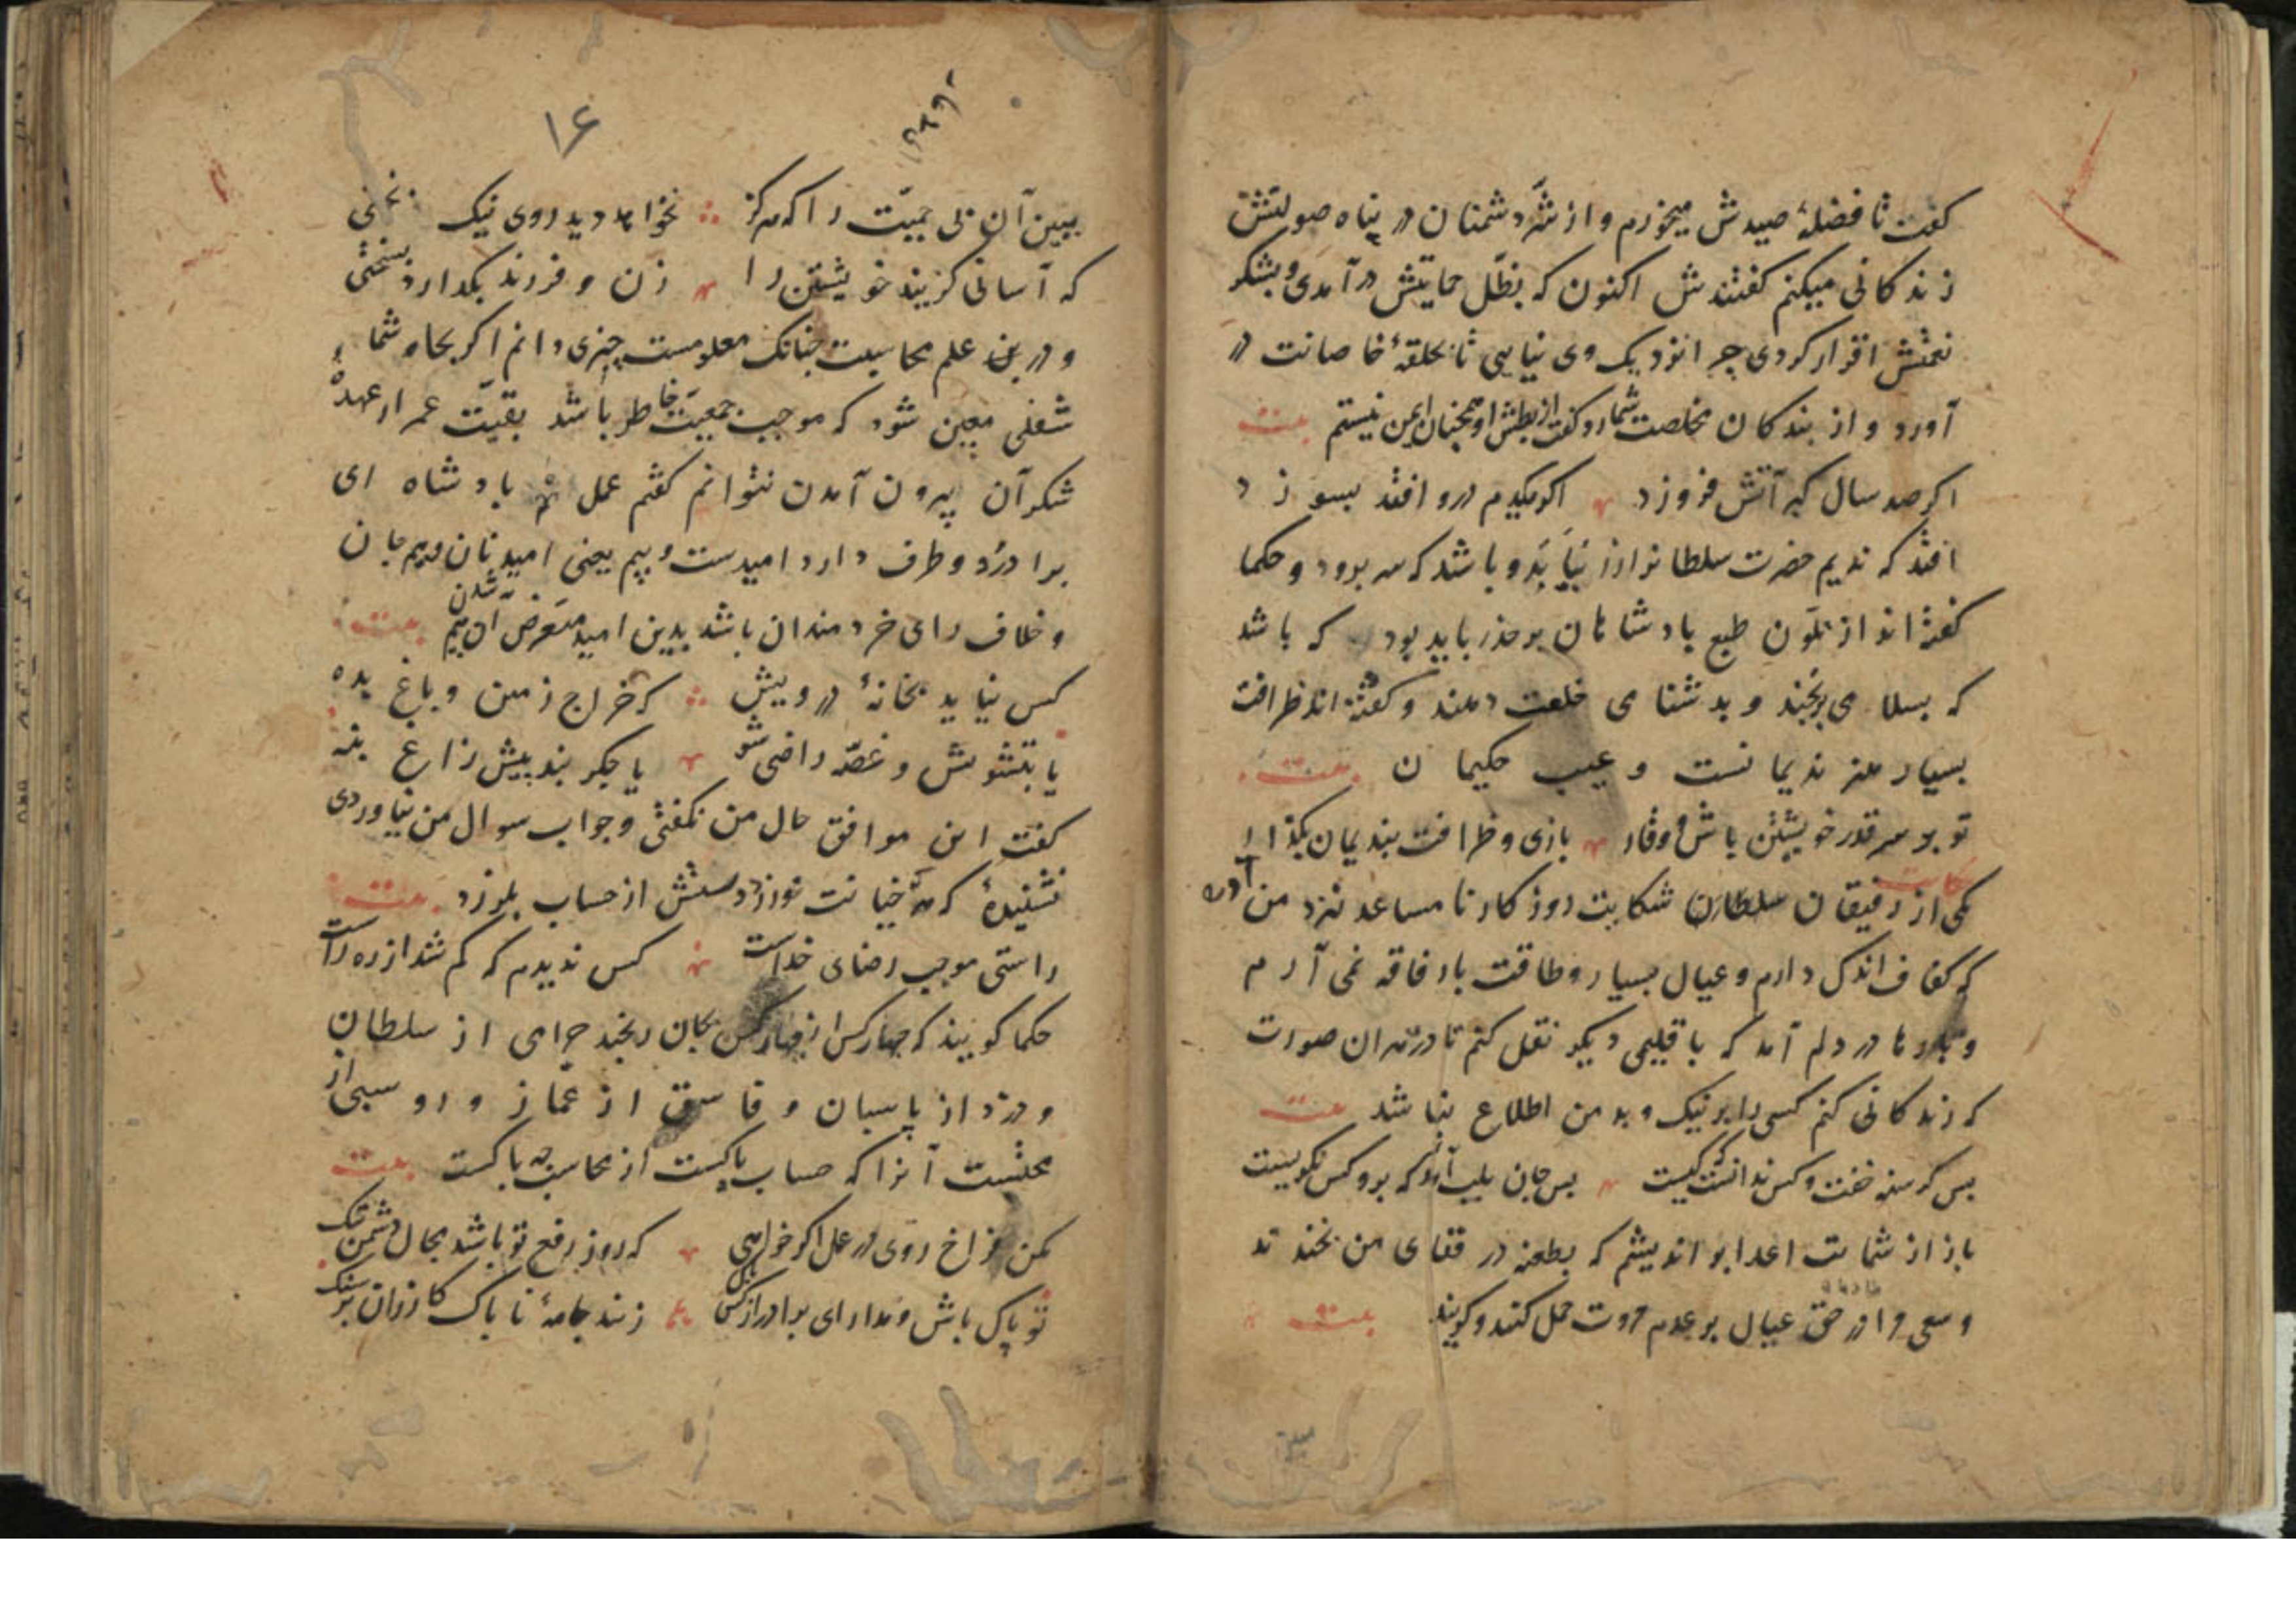 گفت تا فضلهٔ صیدش میخورم و از شرّ دشمنان در پناه صولتش
زندکانی میکنم کفتندش اکنون که بظلّ حمایتش درآمدی و بشکر
نعمتش اقرار کردی چرا نزدیک وی نیایی تا بحلقهٔ خاصانت در
آورد و از بندکان مخلصت شمارد کفت از بطش او همچنان ایمن نیستم بیت
اکر صد سال کبر آتش فروزد اکر یکدم درو افتد بسوزد
افتد که ندیم حضرت سلطانرا زر بیابد و باشد که سر برود و حکما
کفته اند از تلوّن طبع پادشاهان بر حذر باید بود که باشد
که بسلامی برنجند و بدشنامی خلعت دهند و کفته اند ظرافت
بسیار هنر ندیمانست و عیب حکیمان بیت
تو بر سر قدر خویشتن باش و وقار بازی و ظرافت بندیمان بکذار
حکایت
یکی از رفیقان شکایت روزکار نا مساعد نزد من آورد
که کفاف اندک دارم و عیال بسیار و طاقت بار فاقه نمی آرم
و بارها در دلم آمد که باقلیمی دیکر نقل کنم تا در هر ان صورت
که زندکانی کنم کسی را بر نیک و بد من اطلاع نباشد بیت
بس کرسنه خفت و کس ندانست که کیست بس جان بلب آمد که برو کس نکریست
باز از شماتت اعدا بر اندیشم که بطعنه در قفای من بخندند
و سعی مرا در حق عیال بر عدم مروت حمل کنند و کویند بیت
۱۶
ببین آن بی حمیّت را که هرکز نخواهد دید روی نیک بختی
که آسانی کزیند خویشتن را زن و فرزند بکذارد بسختی
و درین علم محاسبت چنانک معلومست چیزی دانم اکر بجاه شما
شغلی معین شود که موجب جمعیّت خاطر باشد بقیّت عمر از عهدهٔ
شکر آن بیرون آمدن نتوانم کفتم عمل پادشاه ای
برادر دو طرف دارد امیدست و بیم یعنی امید نان و بیم جان
و خلاف رای خردمندان باشد بدین امید متعرض آن بیم شدن بیت
کس نیاید بخانهٔ درویش که خراج زمین و باغ بده
یا بتشویش و غصّه راضی شو یا جکر بند پیش زاغ بنه
کفت این موافق حال من نکفتی و جواب سوال من نیاوردی
نشنیدهٔ که هر که خیانت نورزد دستش از حساب نلرزد بیت
راستی موجب رضای خداست کس ندیدم که کم شد از ره راست
حکما کویند که چهار کس از چهار کس بجان برنجد حرامی از سلطان
و دزد از پاسبان و فاسق از غمّاز و روسبی از
محتسب آنرا که حساب پاکست از محاسبه چه باکست بیت
مکن فراخ روی در عمل اکر خواهی که روز رفع تو باشد مجال دشمن تنک
تو پاک باش و مدار ای برادر از کس باک زنند جامهٔ ناپاک کازران بر سنک